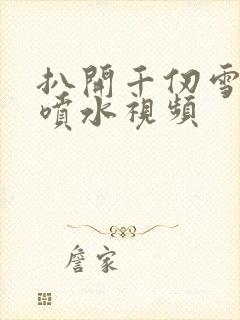 扒開千仞雪
噴水視頻
詹家